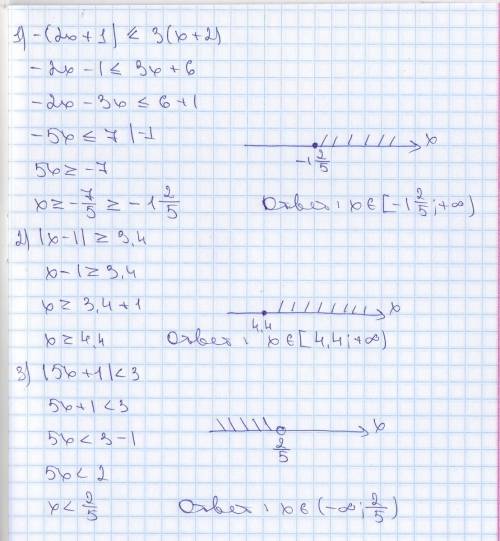 1) -(2x+1) ≤ 3(x+2)
-2x-1 ≤ 3x+6
-2x-3x ≤ 6+1
-5x ≤ 7 |-1
5x ≥ -7
x ≥ -7/5 ≥ -1 2/5
x
-1 2/5
Ответ: x ∈ [-1 2/5; +∞)
2) |x-1| ≥ 3,4
x-1 ≥ 3,4
x ≥ 3,4+1
x ≥ 4,4
x
4,4
Ответ: x ∈ [4,4; +∞)
3) |5x+1| < 3
5x+1 < 3
5x < 3-1
5x < 2
x < 2/5
x
2/5
Ответ: x ∈ (-∞; 2/5)